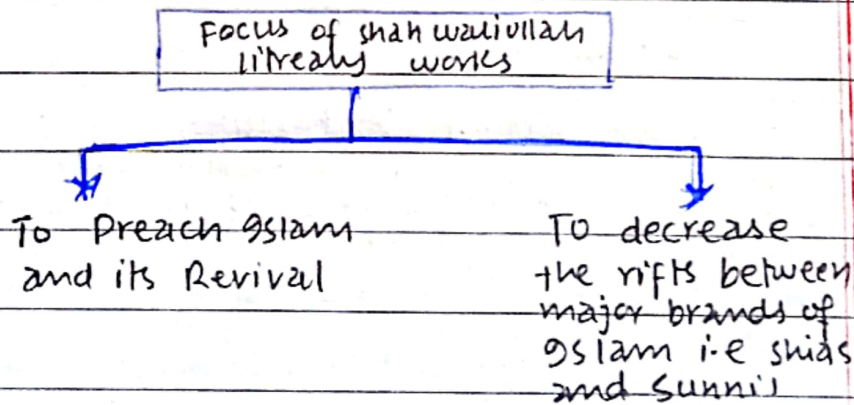 Focus of shah waliullah
litreary works
To Preach Islam
and its Revival
To decrease
the rifts between
major brands of
Islam i.e shias
and Sunnis